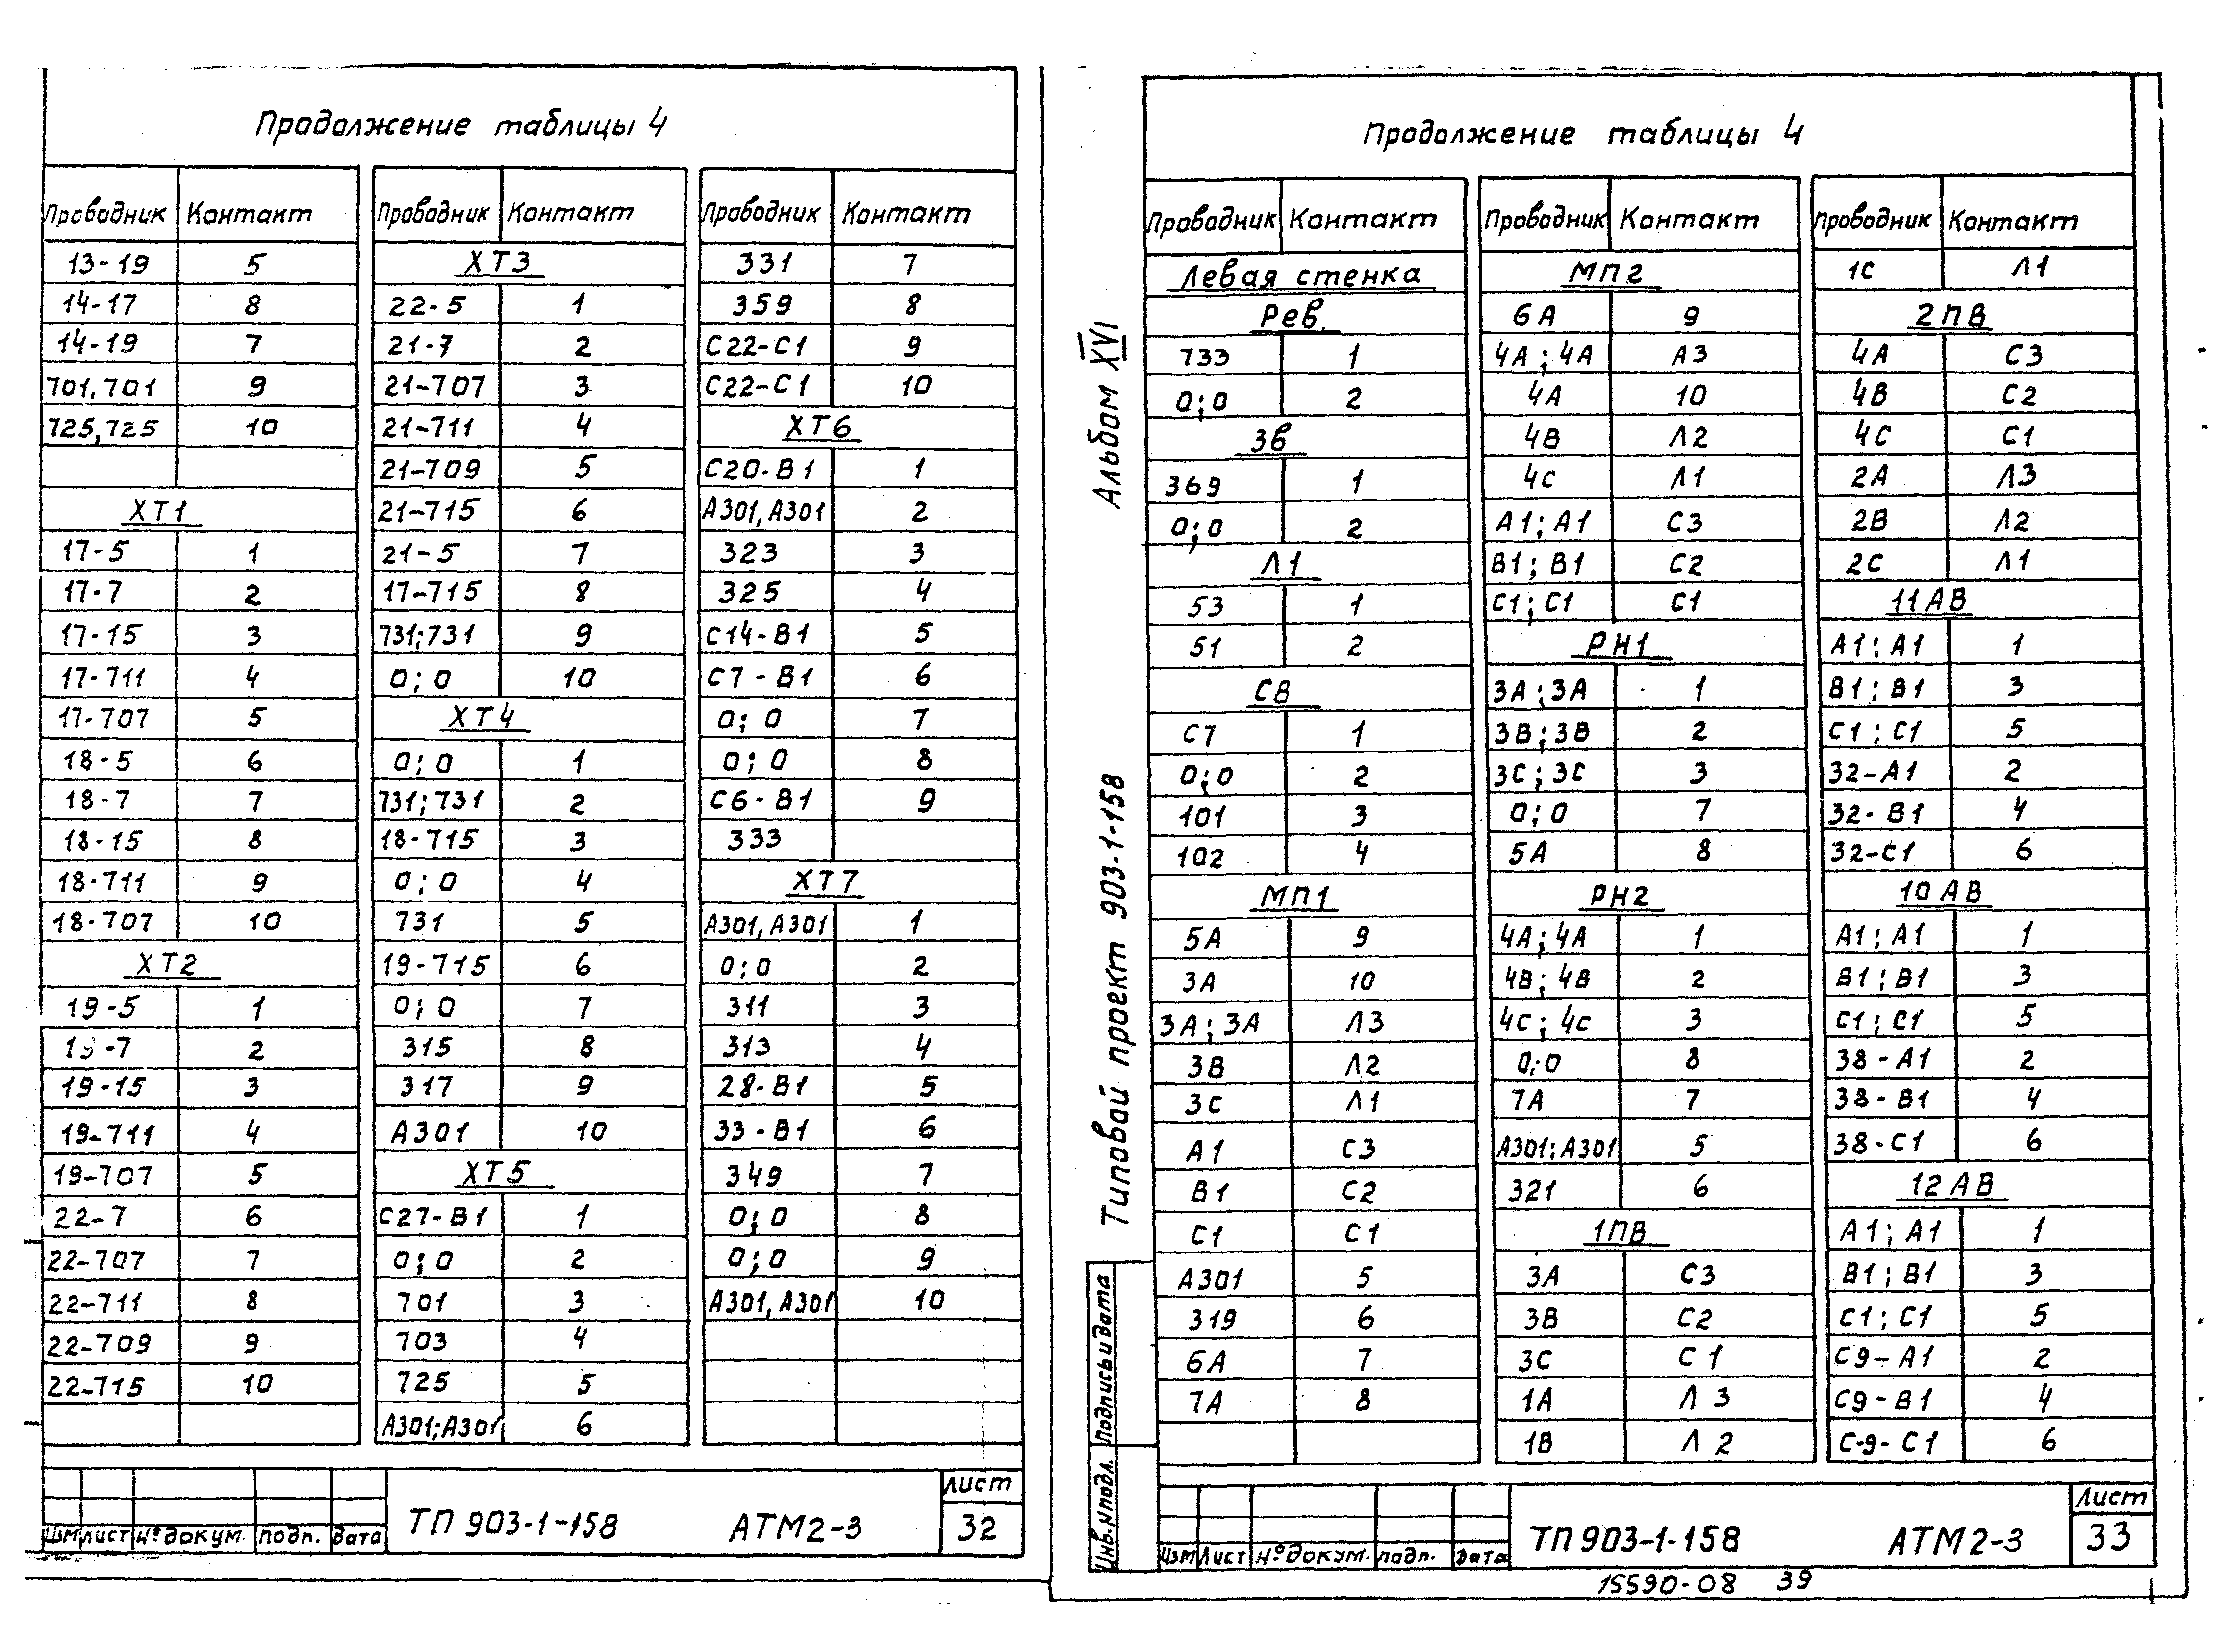 Продолжение таблицы 4
Проводник Контакт
13-19 5
14-17 8
14-19 7
701,701 9
725,725 10
ХТ1
17-5 1
17-7 2
17-15 3
17-711 4
17-707 5
18-5 6
18-7 7
18-15 8
18-711 9
18-707 10
ХТ2
19-5 1
19-7 2
19-15 3
19-711 4
19-707 5
22-7 6
22-707 7
22-711 8
22-709 9
22-715 10
Проводник Контакт
ХТ3
22-5 1
21-7 2
21-707 3
21-711 4
21-709 5
21-715 6
21-5 7
17-715 8
731;731 9
0;0 10
ХТ4
0;0 1
731;731 2
18-715 3
0;0 4
731 5
19-715 6
0;0 7
315 8
317 9
А301 10
ХТ5
С27-В1 1
0;0 2
701 3
703 4
725 5
А301;А301 6
Проводник Контакт
331 7
359 8
С22-С1 9
С22-С1 10
ХТ6
С20-В1 1
А301,А301 2
323 3
325 4
С14-В1 5
С7-В1 6
0;0 7
0;0 8
С6-В1 9
333
ХТ7
А301,А301 1
0;0 2
311 3
313 4
28-В1 5
33-В1 6
349 7
0;0 8
0;0 9
А301,А301 10
Изм Лист № докум. подп. дата
ТП 903-1-158 АТМ2-3
Лист
32
Альбом XVI
Типовой проект 903-1-158
Подпись и дата
Инв. № подл.
Продолжение таблицы 4
Проводник Контакт
Левая стенка
Рев.
733 1
0;0 2
Зв
369 1
0;0 2
Л1
53 1
51 2
СВ
С7 1
0;0 2
101 3
102 4
МП1
5А 9
3А 10
3А;3А Л3
3В Л2
3С Л1
А1 С3
В1 С2
С1 С1
А301 5
319 6
6А 7
7А 8
Проводник Контакт
МП2
6А 9
4А;4А А3
4А 10
4В Л2
4С Л1
А1;А1 С3
В1;В1 С2
С1;С1 С1
РН1
3А;3А 1
3В;3В 2
3С;3С 3
0;0 7
5А 8
РН2
4А;4А 1
4В;4В 2
4С;4С 3
0;0 8
7А 7
А301;А301 5
321 6
1ПВ
3А С3
3В С2
3С С1
1А Л3
1В Л2
Проводник Контакт
1С Л1
2ПВ
4А С3
4В С2
4С С1
2А Л3
2В Л2
2С Л1
11АВ
А1;А1 1
В1;В1 3
С1;С1 5
32-А1 2
32-В1 4
32-С1 6
10АВ
А1;А1 1
В1;В1 3
С1;С1 5
38-А1 2
38-В1 4
38-С1 6
12АВ
А1;А1 1
В1;В1 3
С1;С1 5
С9-А1 2
С9-В1 4
С-9-С1 6
Изм Лист № докум. подп. дата
ТП 903-1-158 АТМ2-3
Лист
33
15590-08 39